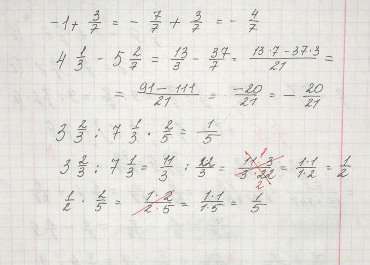 -1 + 3/7 = - 7/7 + 3/7 = - 4/7
4 1/3 - 5 2/7 = 13/3 - 37/7 = 13·7-37·3/21 =
= 91 - 111/21 = -20/21 = - 20/21
3 2/3 : 7 1/3 · 2/5 = 1/5
3 2/3 : 7 1/3 = 11/3 : 22/3 = 11·3/3·22 = 1·1/1·2 = 1/2
1/2 · 2/5 = 1·2/2·5 = 1·1/1·5 = 1/5